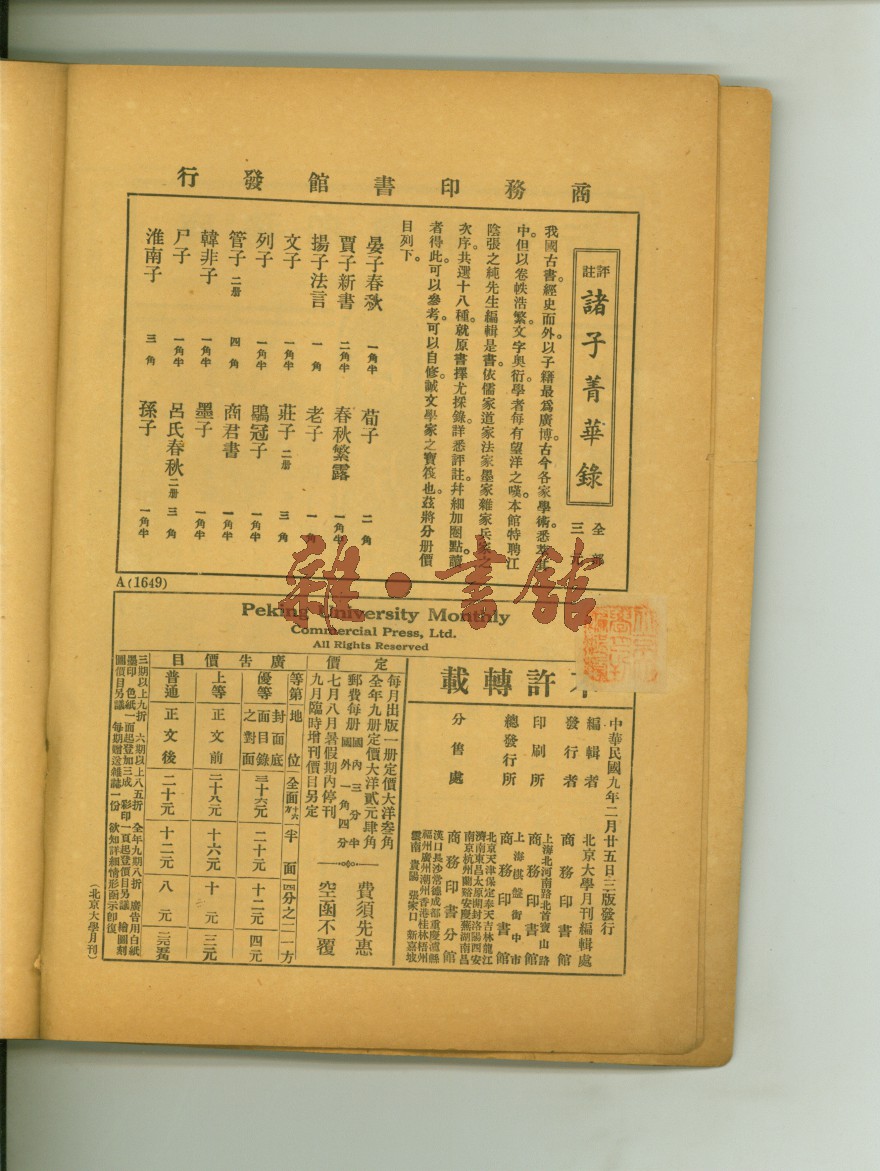 商務印書館發行
評註
諸子菁華錄
全部
三元
我國古書。經史而外。以子籍最爲廣博。古今各家學術。悉萃其
中。但以卷帙浩繁。文字奧衍。學者每有望洋之嘆。本館特聘江
陰張之純先生編輯是書。依儒家道家法家墨家雜家兵家之
次序。共選十八種。就原書擇尤採錄。詳悉評註。幷細加圈點。讀
者得此。可以參考。可以自修。誠文學家之寶筏也。茲將分册價
目列下。
晏子春秋 一角半 荀子 二角
賈子新書 二角半 春秋繁露 一角半
揚子法言 一角 老子 一角
文子 一角半 莊子 二册 三角
列子 一角半 鶡冠子 一角半
管子 二册 四角 商君書 一角半
韓非子 一角半 墨子 一角半
尸子 一角半 呂氏春秋 二册 三角
淮南子 三角 孫子 一角半
A(1649)
雜·書館
Peking University Monthly
Commercial Press, Ltd.
All Rights Reserved
許轉載
中華民國九年二月廿五日三版發行
編輯者 北京大學月刊編輯處
發行者 商務印書館
上海北河南路北首寶山路
印刷所 商務印書館
上海棋盤街中市
總發行所 商務印書館
北京天津保定奉天吉林龍江
濟南東昌太原開封洛陽西安
南京杭州蘭谿安慶蕪湖南昌
分售處 商務印書分館
漢口長沙常德成都重慶瀘縣
福州廣州潮州香港桂林梧州
雲南 貴陽 張家口 新嘉坡
定價
每月出版一册定價大洋叁角
全年九册定價大洋貳元肆角
郵費每册國內三分半
國外一角四分
七月八月暑假期內停刊
九月臨時增刊價目另定
費須先惠
空函不覆
廣告價目
等第 地位 全面 半面 四分之一 一方
優等 封面底面目錄之對面 三十六元 二十元 十二元 四元
上等 正文前 二十八元 十六元 十元 三元
普通 正文後 二十元 十二元 八元
三期以上九折 六期以上八五折 全年九期八折 廣告用白紙
墨印 色紙一面起登加三成 彩印一頁起登價目另議 繪圖刻
圖價目另議 每期贈送雜誌一份 欲知詳細情形函示卽復
(北京大學月刊)